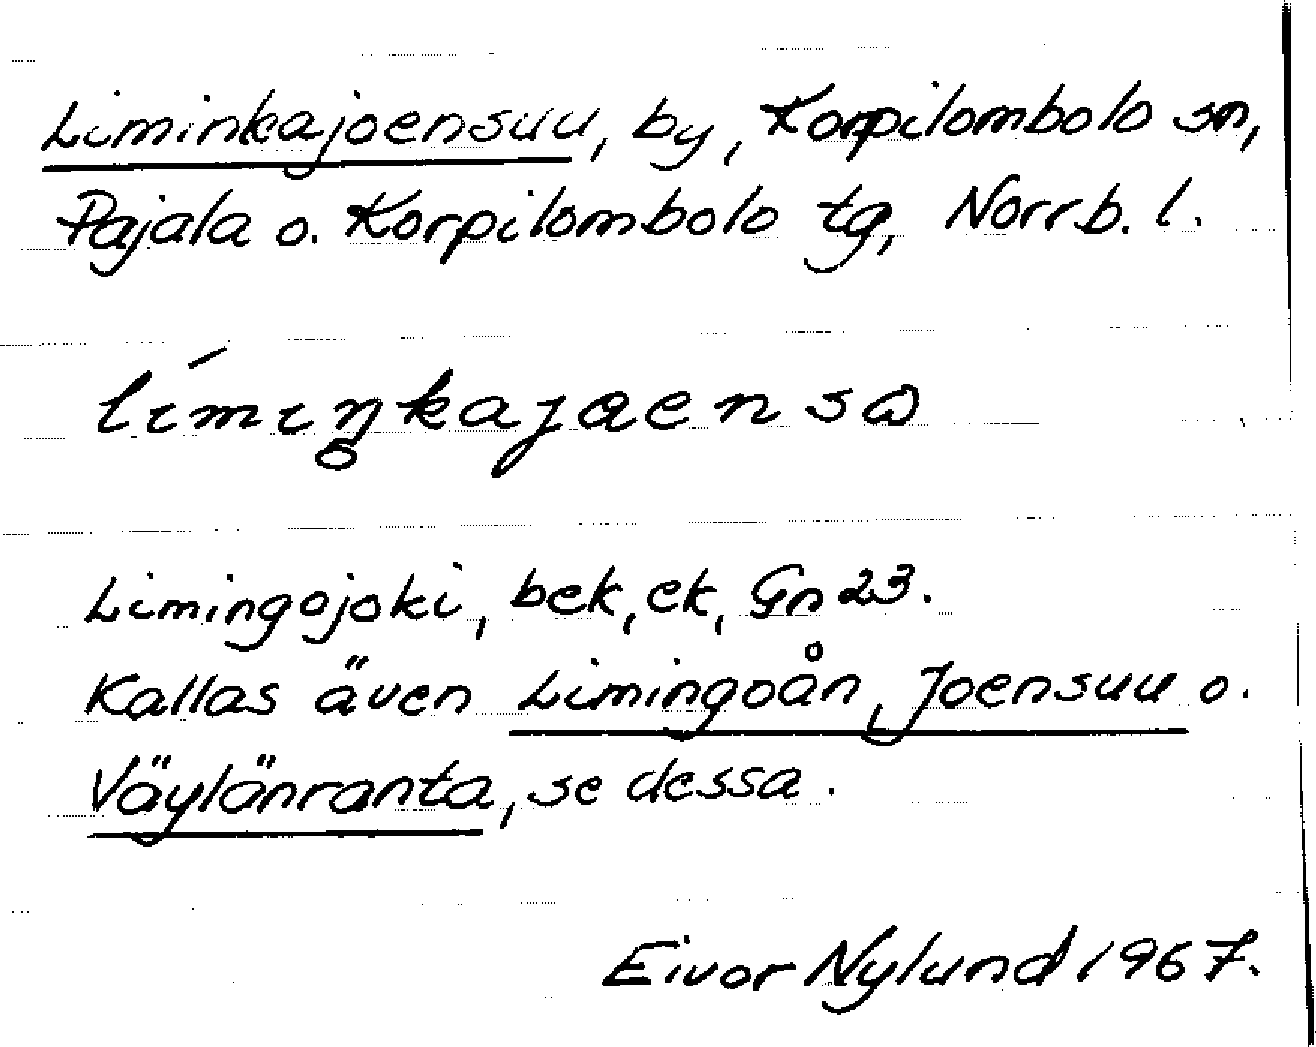 Liminkajoensuu, by, Korpilombolo sn,
Pajala o. Korpilombolo tg, Norrb. l.
límiŋ̊kajoensɷ
Limingojoki, bek, ek, Gn 23.
Kallas även Limingoån, Joensuu o.
Väylänranta, se dessa.
Eivor Nylund 1967.